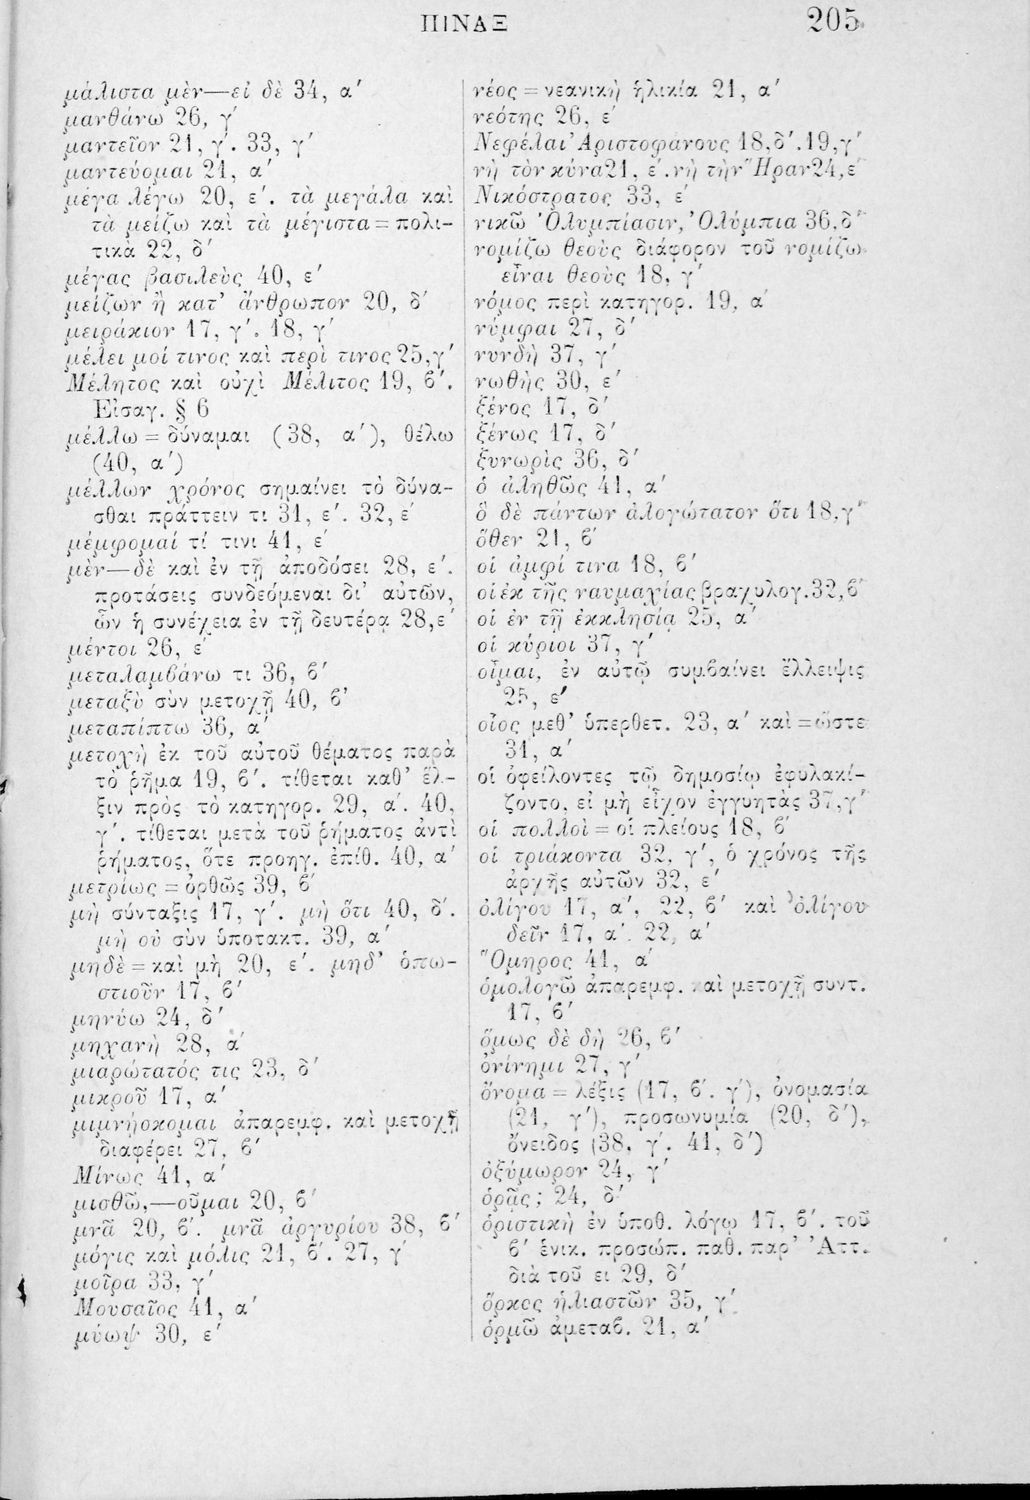 ΠΙΝΑΞ
205
μάλιστα μὲν—εἰ δὲ 34, α΄
μανθάνω 26, γ΄
μαντεῖον 21, γ΄. 33, γ΄
μαντεύομαι 21, α΄
μέγα λέγω 20, ε΄. τὰ μεγάλα καὶ
τὰ μείζω καὶ τὰ μέγιστα=πολι-
τικὰ 22, δ΄
μέγας βασιλεὺς 40, ε΄
μείζων ἢ κατ’ ἄνθρωπον 20, δ΄
μειράκιον 17, γ΄. 18, γ΄
μέλει μοί τινος καὶ περὶ τινος 25,γ΄
Μέλητος καὶ οὐχὶ Μέλιτος 19, β΄.
Εἰσαγ. § 6
μέλλω=δύναμαι (38, α΄), θέλω
(40, α΄)
μέλλων χρόνος σημαίνει τὸ δύνα-
σθαι πράττειν τι 31, ε΄. 32,ε΄
μέμφομαί τί τινι 41, ε΄
μὲν—δὲ καὶ ἐν τῇ ἀποδόσει 28, ε΄.
προτάσεις συνδεόμεναι δι’ αὐτῶν,
ὧν ἡ συνέχεια ἐν τῇ δευτέρᾳ 28,ε΄
μέντοι 26, ε΄
μεταλαμβάνω τι 36, β΄
μεταξὺ σὺν μετοχῇ 40, β΄
μεταπίπτω 36, α΄
μετοχὴ ἐκ τοῦ αὐτοῦ θέματος παρὰ
τὸ ῥῆμα 19, β΄. τίθεται καθ’ ἕλ-
ξιν πρὸς τὸ κατηγορ. 29, α΄. 40,
γ΄. τίθεται μετὰ τοῦ ῥήματος ἀντὶ
ῥήματος, ὅτε προηγ. ἐπίθ. 40, α΄
μετρίως=ὀρθῶς 39, β΄
μὴ σύνταξις 17, γ΄. μὴ ὅτι 40, δ΄.
μὴ οὐ σὺν ὑποτακτ. 39, α΄
μηδὲ=καὶ μὴ 20, ε΄. μηδ’ ὁπω-
στιοῦν 17, β΄
μηνύω 24, δ΄
μηχανὴ 28, α΄
μιαρώτατός τις 23, δ΄
μικροῦ 17, α΄
μιμνήσκομαι ἀπαρεμφ. καὶ μετοχῇ
διαφέρει 27, β΄
Μίνως 41, α΄
μισθῶ,—οῦμαι 20, β΄
μνᾶ 20, β΄. μνᾶ ἀργυρίου 38, β΄
μόγις καὶ μόλις 21, β΄. 27, γ΄
μοῖρα 33, γ΄
Μουσαῖος 41, α΄
μύωψ 30, ε΄
νέος=νεανικὴ ἡλικία 21, α΄
νεότης 26, ε΄
Νεφέλαι Ἀριστοφάνους 18,δ΄.19,γ΄
νὴ τὸν κύνα21, ε΄.νὴ τὴν Ἥραν24,ε΄
Νικόστρατος 33, ε΄
νικῶ Ὀλυμπίασιν, Ὀλύμπια 36,δ΄
νομίζω θεοὺς διάφορον τοῦ νομίζω
εἶναι θεοὺς 18, γ΄
νόμος περὶ κατηγορ. 19, α΄
νύμφαι 27, δ΄
νυνδὴ 37, γ΄
νωθὴς 30, ε΄
ξένος 17, δ΄
ξένως 17, δ΄
ξυνωρὶς 36, δ΄
ὁ ἀληθῶς 41, α΄
ὃ δὲ πάντων ἀλογώτατον ὅτι 18,γ΄
ὅθεν 21, β΄
οἱ ἀμφί τινα 18, β΄
οἱ ἐκ τῆς ναυμαχίας βραχυλογ.32,β΄
οἱ ἐν τῇ ἐκκλησίᾳ 25, α΄
οἱ κύριοι 37, γ΄
οἶμαι, ἐν αὐτῷ συμβαίνει ἔλλειψις
25, ε΄
οἷος μεθ’ ὑπερθετ. 23, α΄ καὶ=ὥστε
31, α΄
οἱ ὀφείλοντες τῷ δημοσίῳ ἐφυλακί-
ζοντο, εἰ μὴ εἶχον ἐγγυητὰς 37,γ΄
οἱ πολλοὶ=οἱ πλείους 18, β΄
οἱ τριάκοντα 32, γ΄, ὁ χρόνος τῆς
ἀρχῆς αὐτῶν 32, ε΄
ὀλίγου 17, α΄, 22, β΄ καὶ ὀλίγου
δεῖν 17, α΄. 22, α΄
Ὅμηρος 41, α΄
ὁμολογῶ ἀπαρεμφ. καὶ μετοχῇ συντ.
17, β΄
ὅμως δὲ δὴ 26, β΄
ὀνίνημι 27, γ΄
ὄνομα=λέξις (17, β΄. γ΄), ὀνομασία
(21, γ΄), προσωνυμία (20, δ΄),
ὄνειδος (38, γ΄. 41, δ΄)
ὀξύμωρον 24, γ΄
ὁρᾷς; 24, δ΄
ὁριστικὴ ἐν ὑποθ. λόγῳ 17, β΄. τοῦ
β΄ ἑνικ. προσώπ. παθ. παρ’ Ἀττ.
διὰ τοῦ ει 29, δ΄
ὅρκος ἡλιαστῶν 35, γ΄
ὁρμῶ ἀμεταβ. 21, α΄